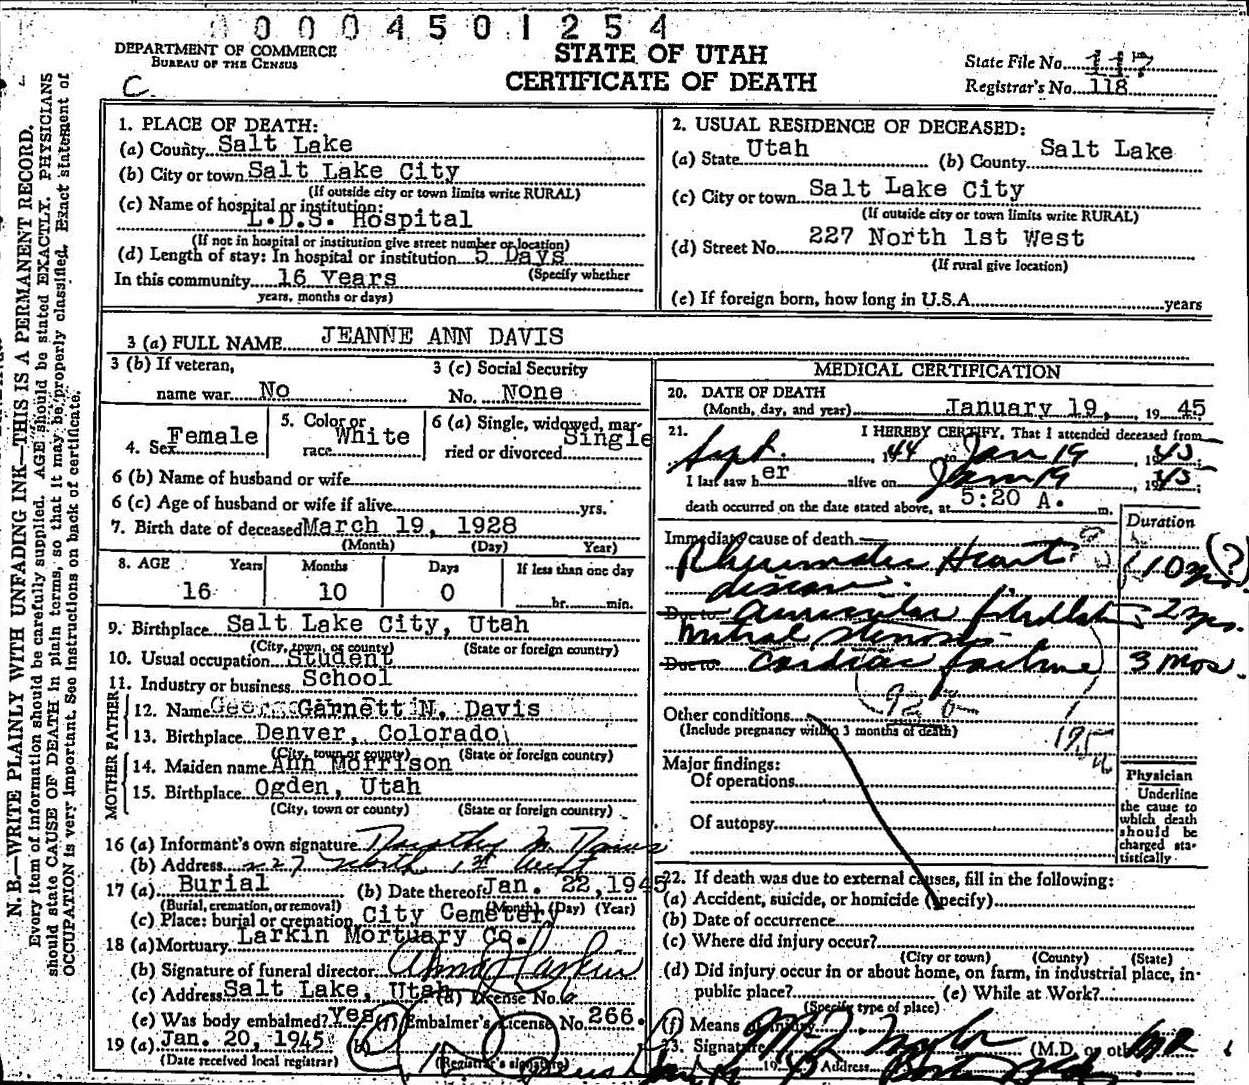 00004501254
DEPARTMENT OF COMMERCE
BUREAU OF THE CENSUS
C.
STATE OF UTAH
CERTIFICATE OF DEATH
State File No. 117
Registrar's No. 118
N. B.—WRITE PLAINLY WITH UNFADING INK—THIS IS A PERMANENT RECORD.
Every item of information should be carefully supplied. AGE should be stated EXACTLY. PHYSICIANS
should state CAUSE OF DEATH in plain terms, so that it may be properly classified. Exact statement of
OCCUPATION is very important. See instructions on back of certificate.
1. PLACE OF DEATH:
(a) County Salt Lake
(b) City or town Salt Lake City
(If outside city or town limits write RURAL)
(c) Name of hospital or institution:
L.D.S. Hospital
(If not in hospital or institution give street number or location)
(d) Length of stay: In hospital or institution 5 Days
(Specify whether
In this community 16 Years
years, months or days)
2. USUAL RESIDENCE OF DECEASED:
(a) State Utah (b) County Salt Lake
(c) City or town Salt Lake City
(If outside city or town limits write RURAL)
(d) Street No. 227 North 1st West
(If rural give location)
(e) If foreign born, how long in U.S.A. years
3 (a) FULL NAME JEANNE ANN DAVIS
3 (b) If veteran,
name war No
3 (c) Social Security
No. None
4. Sex Female
5. Color or
race White
6 (a) Single, widowed, mar-
ried or divorced Single
6 (b) Name of husband or wife
6 (c) Age of husband or wife if alive yrs.
7. Birth date of deceased March 19, 1928
(Month) (Day) Year)
8. AGE Years Months Days If less than one day
16 10 0 hr. min.
9. Birthplace Salt Lake City, Utah
(City, town, or county) (State or foreign country)
10. Usual occupation Student
11. Industry or business School
FATHER
12. Name Garnett N. Davis
13. Birthplace Denver, Colorado
(City, town or county) (State or foreign country)
MOTHER
14. Maiden name Ann Morrison
15. Birthplace Ogden, Utah
(City, town or county) (State or foreign country)
16 (a) Informant's own signature Dorothy M. Davis
(b) Address 227 North 1st West
17 (a) Burial (b) Date thereof Jan. 22, 1945
(Burial, cremation, or removal) (Month) (Day) (Year)
(c) Place: burial or cremation City Cemetery
18 (a) Mortuary Larkin Mortuary Co.
(b) Signature of funeral director Alma Larkin
(c) Address Salt Lake, Utah (d) License No.
(e) Was body embalmed? Yes (f) Embalmer's License No. 266.
19 (a) Jan. 20, 1945 (b)
(Date received local registrar) (Registrar's signature)
MEDICAL CERTIFICATION
20. DATE OF DEATH
(Month, day, and year) January 19, 1945
21. I HEREBY CERTIFY, That I attended deceased from
Sept. 1944 to Jan 19, 1945
I last saw her alive on Jan 19, 1945
death occurred on the date stated above, at 5:20 A. m.
Duration
Immediate cause of death
Rheumatic Heart (10 yrs. (?)
disease.
Due to auricular fibrillation 2 yrs.
mitral stenosis
Due to cardiac failure 3 mos.
92 b
Other conditions
(Include pregnancy within 3 months of death)
195
Major findings:
Of operations
Of autopsy
Physician
Underline
the cause to
which death
should be
charged sta-
tistically
22. If death was due to external causes, fill in the following:
(a) Accident, suicide, or homicide (specify)
(b) Date of occurrence
(c) Where did injury occur?
(City or town) (County) (State)
(d) Did injury occur in or about home, on farm, in industrial place, in-
public place? (e) While at Work?
(Specify type of place)
(f) Means of injury
23. Signature (M.D. or other)
Address